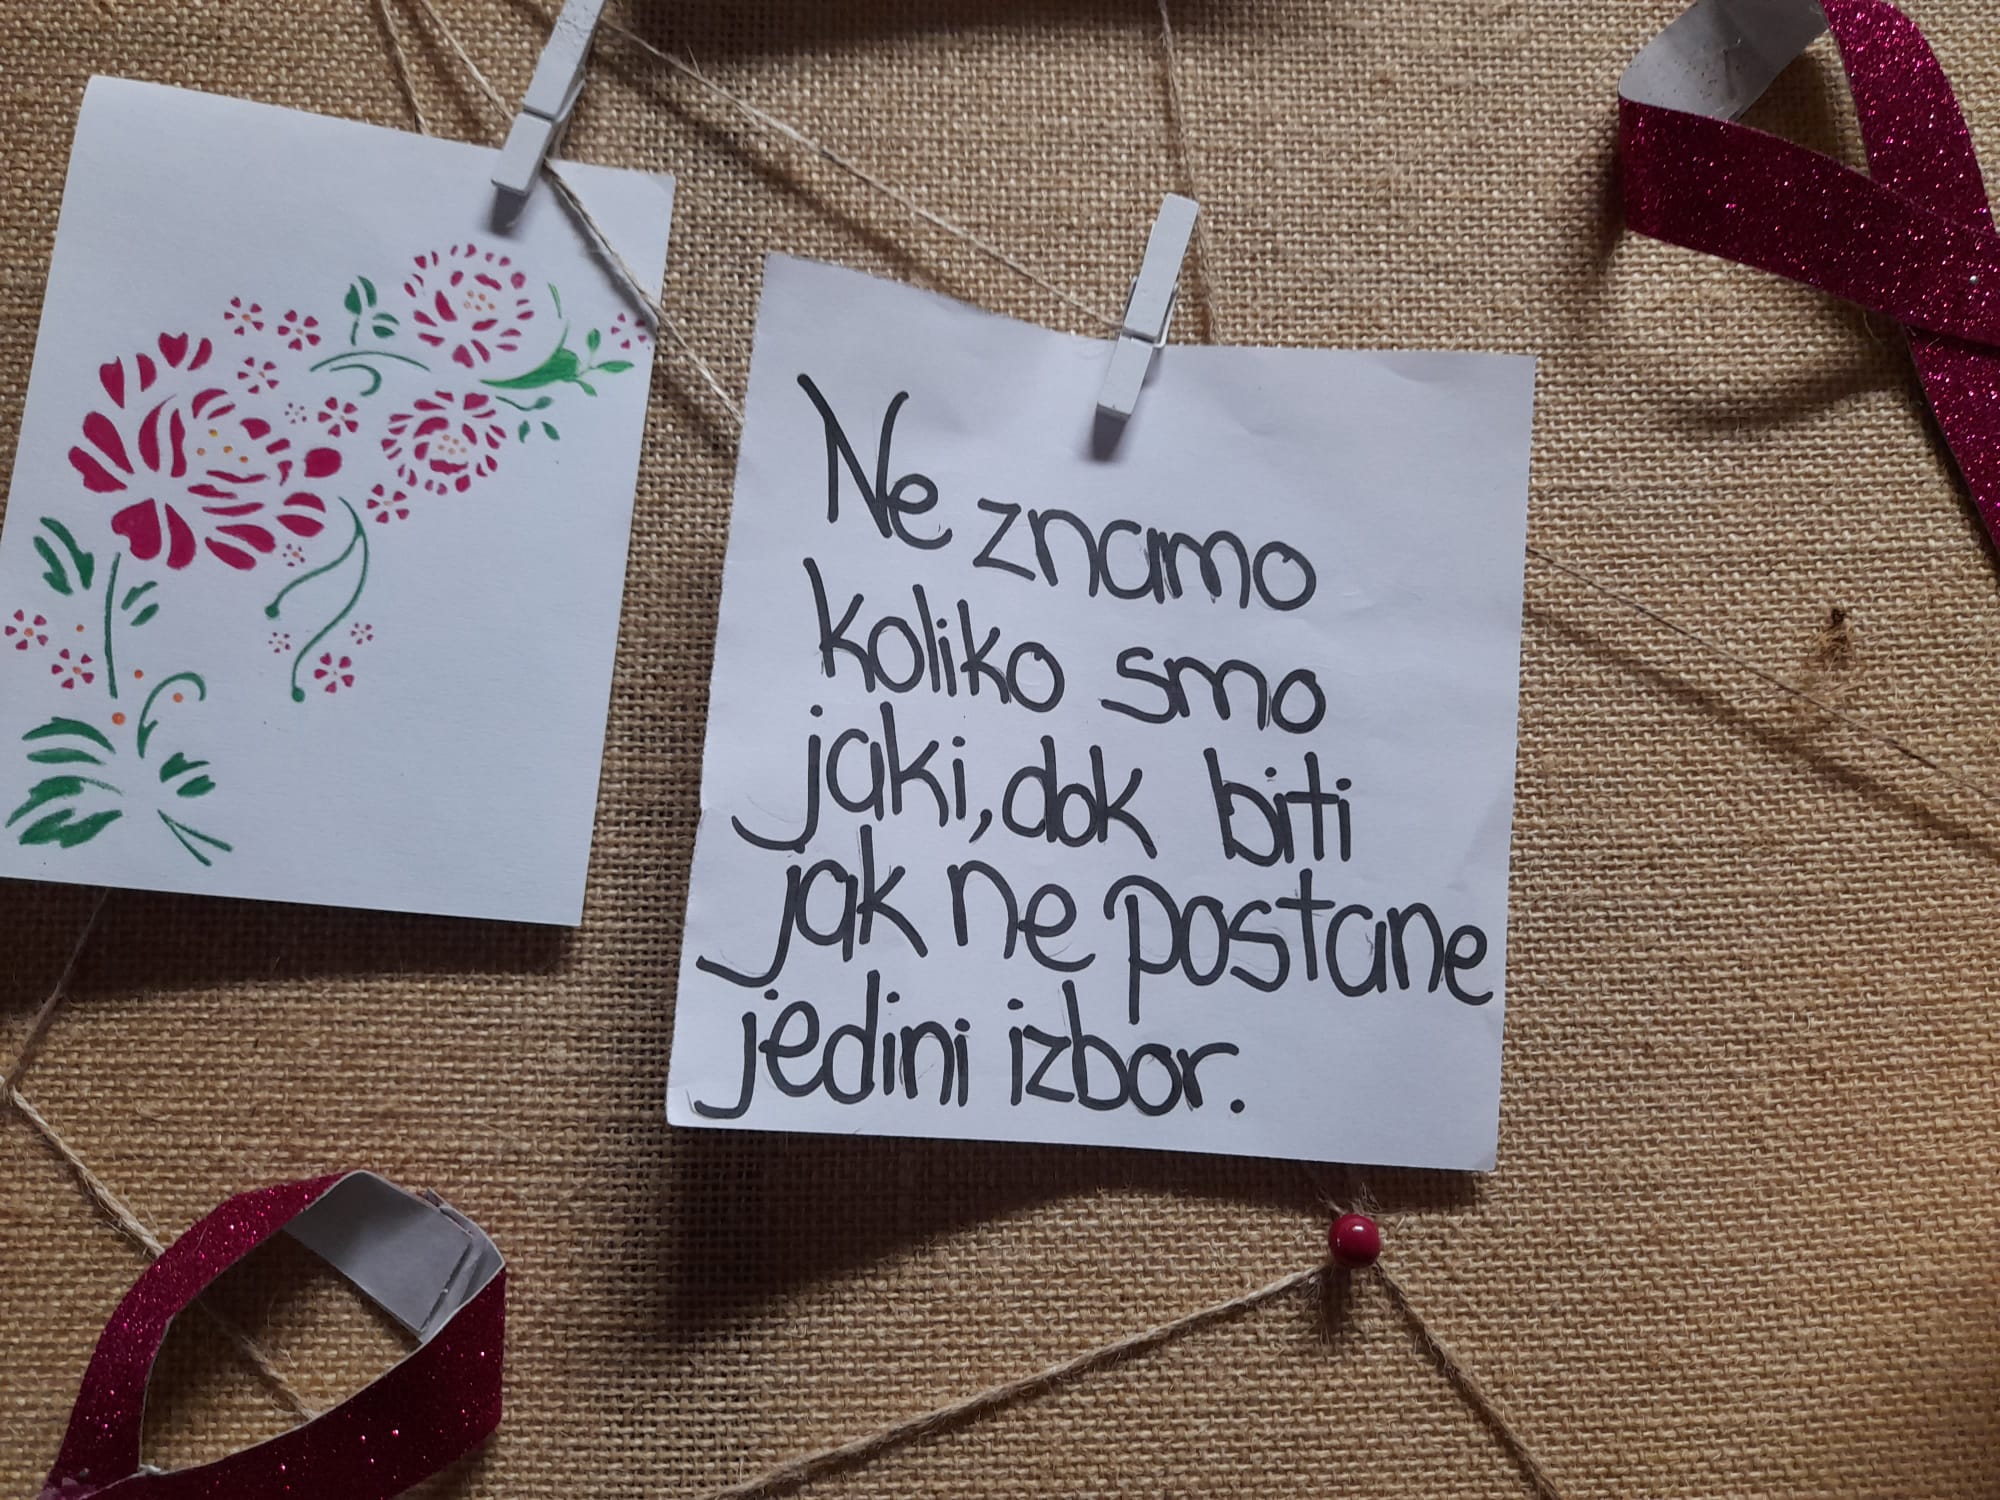 Ne znamo
koliko smo
jaki, dok biti
jak ne postane
jedini izbor.